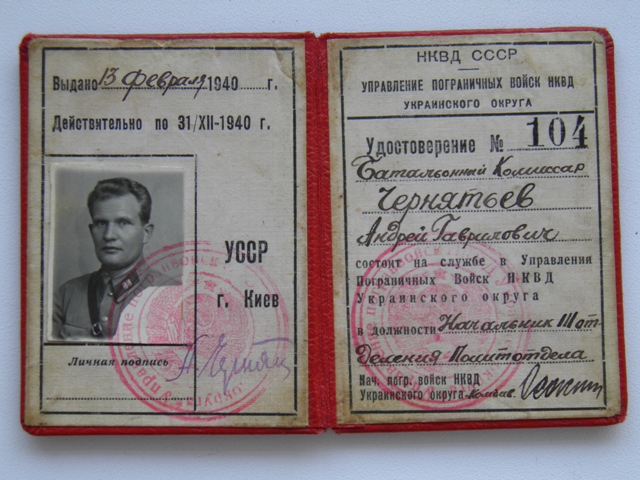 Выдано 13 февраля 1940 г.
Действительно по 31/XII-1940 г.
УССР
г. Киев
Личная подпись А Чернят
НКВД СССР
УПРАВЛЕНИЕ ПОГРАНИЧНЫХ ВОЙСК НКВД
УКРАИНСКОГО ОКРУГА
Удостоверение № 104
Батальонный Комиссар
Чернятьев
Андрей Гаврилович
состоит на службе в Управлении
Пограничных Войск НКВД
Украинского округа
в должности Начальник III от
деления Политотдела
Нач. погр. войск НКВД
Украинского округа Комдив